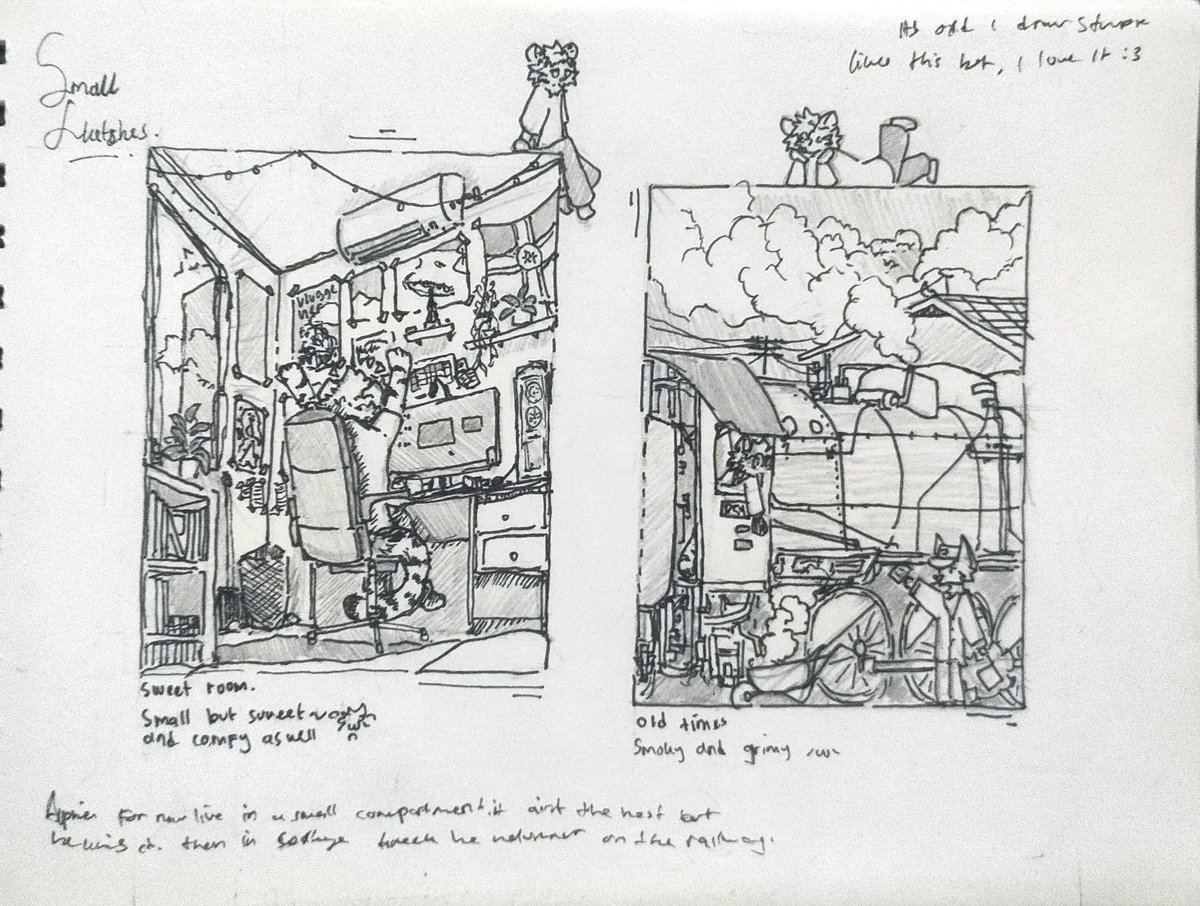 Small
Sketches.
As odd I draw stuff
like this but, I love it :3
Sweet room.
Small but sweet
and compy aswell
old times
Smoky and grimy
for now live in a small compartment it aint the best but
he then in he on the railway.